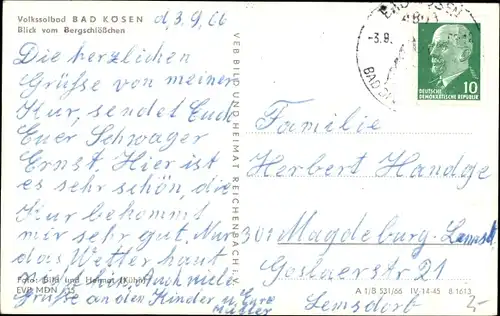 Volkssolbad BAD KÖSEN
Blick vom Bergschlößchen
d, 3. 9. 66
Die herzlichen
Grüße von meiner
Kur, sendet Euch
Euer Schwager
Ernst. Hier ist
es sehr schön, die
Kur bekommt
mir sehr gut. Nur
das Wetter haut
nicht hin. Auch viele
Grüße an den Kinder u. Eure
Mutter
Foto: Bild und Heimat (Kühn)
EVP MDN
VEB BILD UND HEIMAT REICHENBACH i. V.
BAD
-3.9.
10
DEUTSCHE
DEMOKRATISCHE REPUBLIK
Familie
Herbert Handge
301 Magdeburg-Lemsd.
Goslaerstr 21
Lemsdorf
A 1/B 531/66 IV-14-45 8 1613